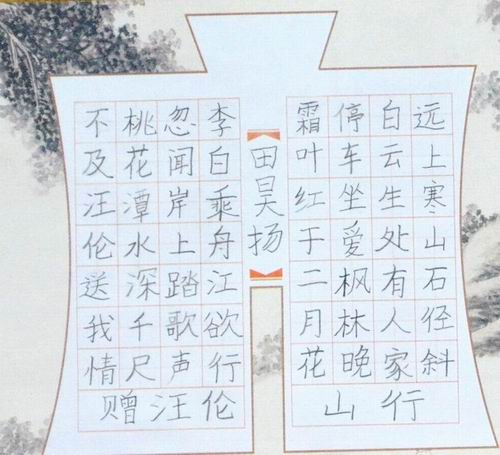 远上寒山石径斜
白云生处有人家
停车坐爱枫林晚
霜叶红于二月花
山行
田昊扬
李白乘舟江欲行
忽闻岸上踏歌声
桃花潭水深千尺
不及汪伦送我情
赠汪伦